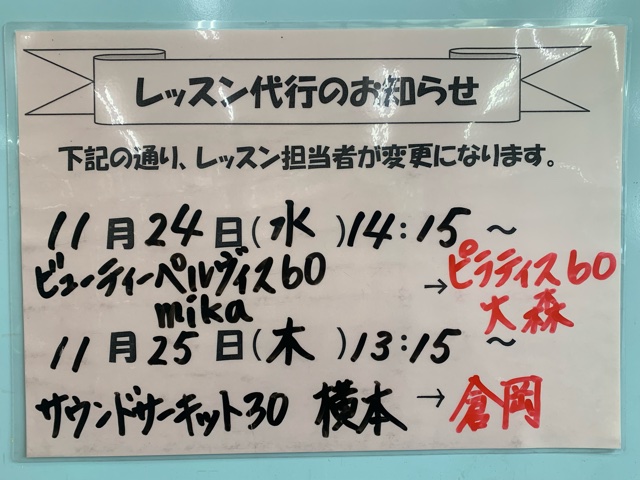 レッスン代行のお知らせ
下記の通り、レッスン担当者が変更になります。
11月24日(水)14:15～
ビューティーペルヴィス60 → ピラティス60
mika 大森
11月25日(木)13:15～
サウンドサーキット30 横本 → 倉岡